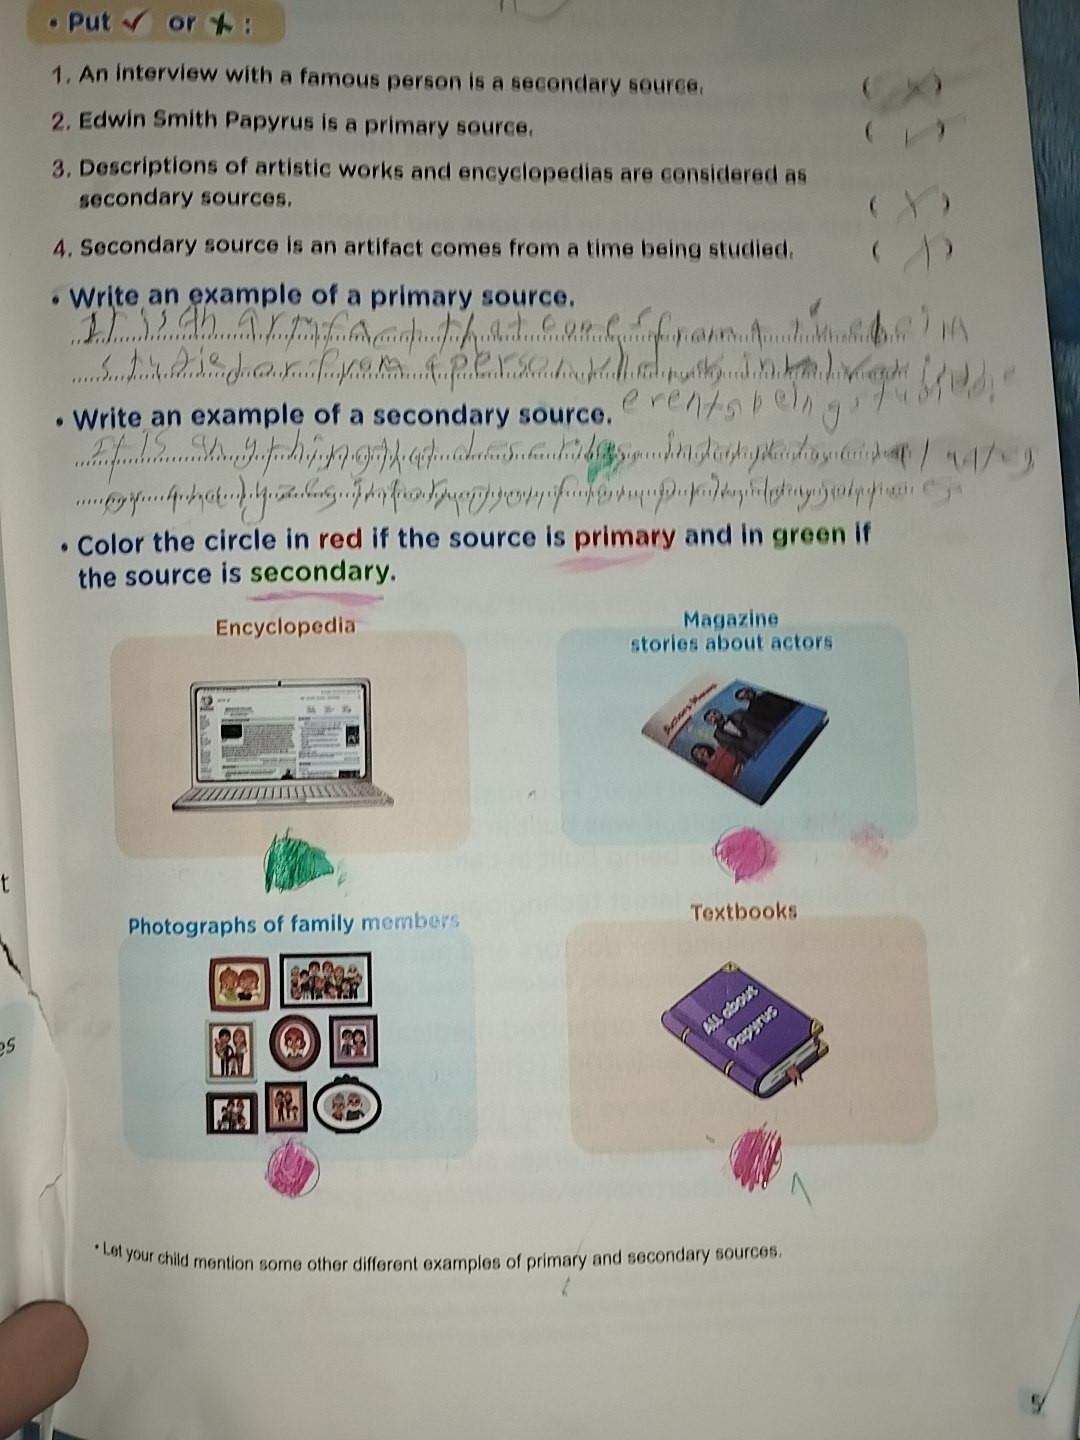 • Put ✓ or ✗ :
1. An interview with a famous person is a secondary source. ( ✗ )
2. Edwin Smith Papyrus is a primary source. ( ✓ )
3. Descriptions of artistic works and encyclopedias are considered as
secondary sources. ( ✗ )
4. Secondary source is an artifact comes from a time being studied. ( )
• Write an example of a primary source.
It is an artifact that comes from a time bein
studied or from a person who was involved in the
• Write an example of a secondary source.
events being studied.
It is anything that describes interprets evaluates
or analyzes information from primary sources
• Color the circle in red if the source is primary and in green if
the source is secondary.
Encyclopedia
Magazine
stories about actors
Actors News
Photographs of family members
Textbooks
All about
Papyrus
t
es
• Let your child mention some other different examples of primary and secondary sources.
5